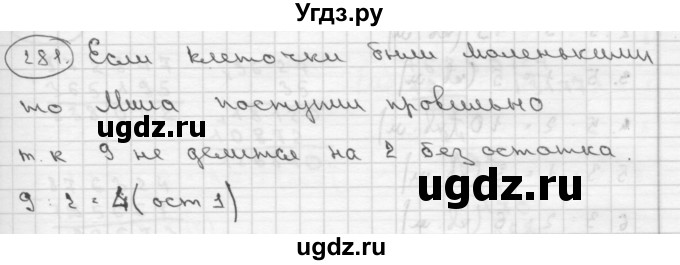 Угдз.ру
281. Если клеточки были маленькими
то Миша поступил провельно
ugdz.ru ugdz.ru
т.к 9 не делится на 2 без остатка.
9 : 2 = 4 (ост 1)
ugdz.ru
ugdz.ru